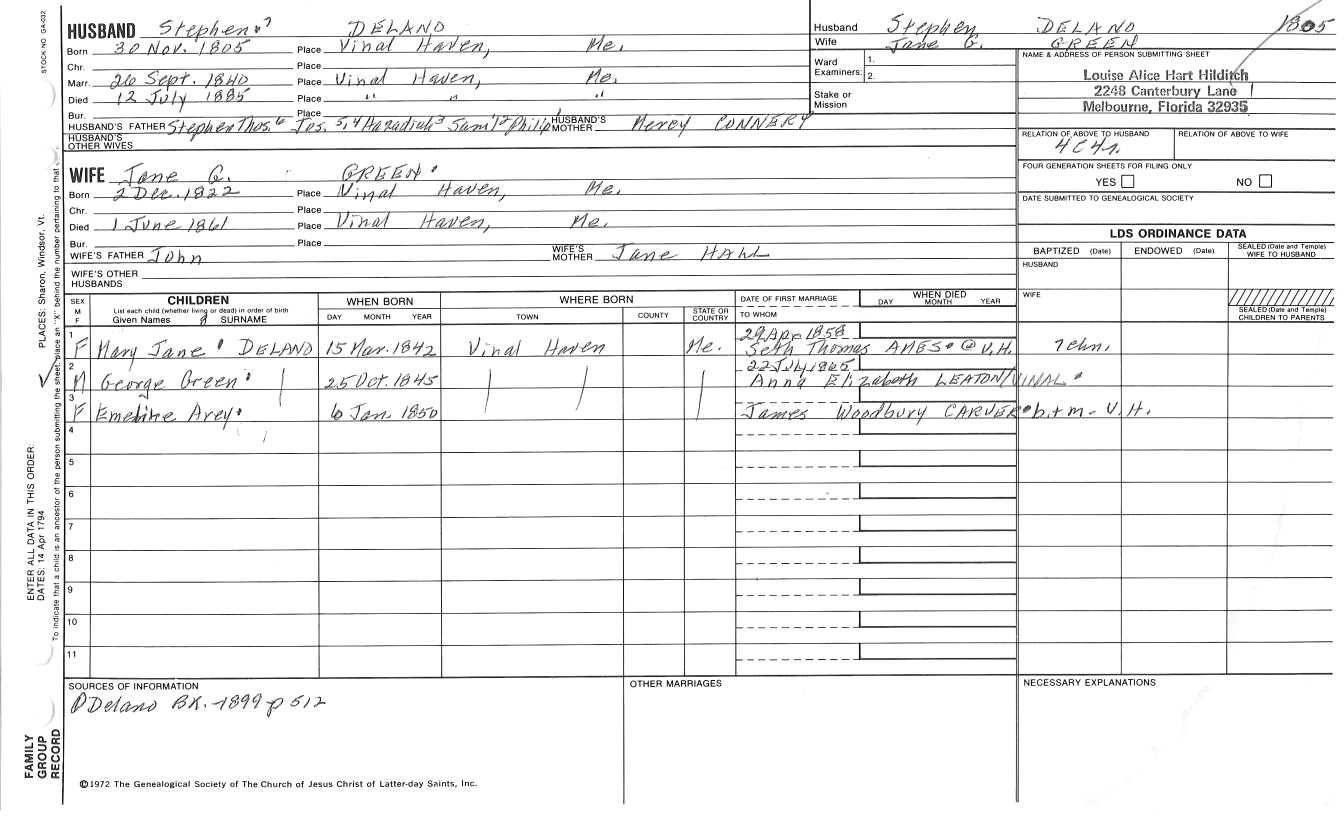 STOCK NO. GA-032
HUSBAND Stephen 7 DELANO
Born 30 Nov. 1805 Place Vinal Haven, Me.
Chr. Place
Marr. 26 Sept. 1840 Place Vinal Haven, Me.
Died 12 July 1885 Place " " "
Bur. Place
HUSBAND'S FATHER Stephen Thos.6 Jos. 5,4 Hazadiah3 Sam'l2 Philip HUSBAND'S MOTHER Mercy CONNERY
HUSBAND'S OTHER WIVES
WIFE Jane G. GREEN
Born 2 Dec. 1822 Place Vinal Haven, Me.
Chr. Place
Died 1 June 1861 Place Vinal Haven, Me.
Bur. Place
WIFE'S FATHER John WIFE'S MOTHER Jane HALL
WIFE'S OTHER HUSBANDS
Husband Stephen DELANO 1805
Wife Jane G. GREEN
Ward Examiners: 1. 2.
Stake or Mission
NAME & ADDRESS OF PERSON SUBMITTING SHEET
Louise Alice Hart Hilditch
2248 Canterbury Lane
Melbourne, Florida 32935
RELATION OF ABOVE TO HUSBAND RELATION OF ABOVE TO WIFE
4C4r.
FOUR GENERATION SHEETS FOR FILING ONLY
YES NO
DATE SUBMITTED TO GENEALOGICAL SOCIETY
LDS ORDINANCE DATA
BAPTIZED (Date) ENDOWED (Date) SEALED (Date and Temple) WIFE TO HUSBAND
HUSBAND
WIFE
SEALED (Date and Temple) CHILDREN TO PARENTS
SEX M F
CHILDREN
List each child (whether living or dead) in order of birth
Given Names SURNAME
WHEN BORN
DAY MONTH YEAR
WHERE BORN
TOWN COUNTY STATE OR COUNTRY
DATE OF FIRST MARRIAGE
TO WHOM
WHEN DIED
DAY MONTH YEAR
1 F Mary Jane DELANO 15 Mar. 1842 Vinal Haven Me. 29 Apr 1858
Seth Thomas AMES @ V.H. 7 chn.
2 M George Green 25 Oct. 1845 22 July 1865
Anna Elizabeth LEATON/VINAL
3 F Emeline Arey 6 Jan. 1850 James Woodbury CARVER b. + m - V.H.
4
5
6
7
8
9
10
11
SOURCES OF INFORMATION
Delano BK. -1899 p 512
OTHER MARRIAGES
NECESSARY EXPLANATIONS
©1972 The Genealogical Society of The Church of Jesus Christ of Latter-day Saints, Inc.
FAMILY GROUP RECORD
ENTER ALL DATA IN THIS ORDER:
DATES: 14 Apr 1794
PLACES: Sharon, Windsor, Vt.
To indicate that a child is an ancestor of the person submitting the sheet, place an "X" behind the number pertaining to that